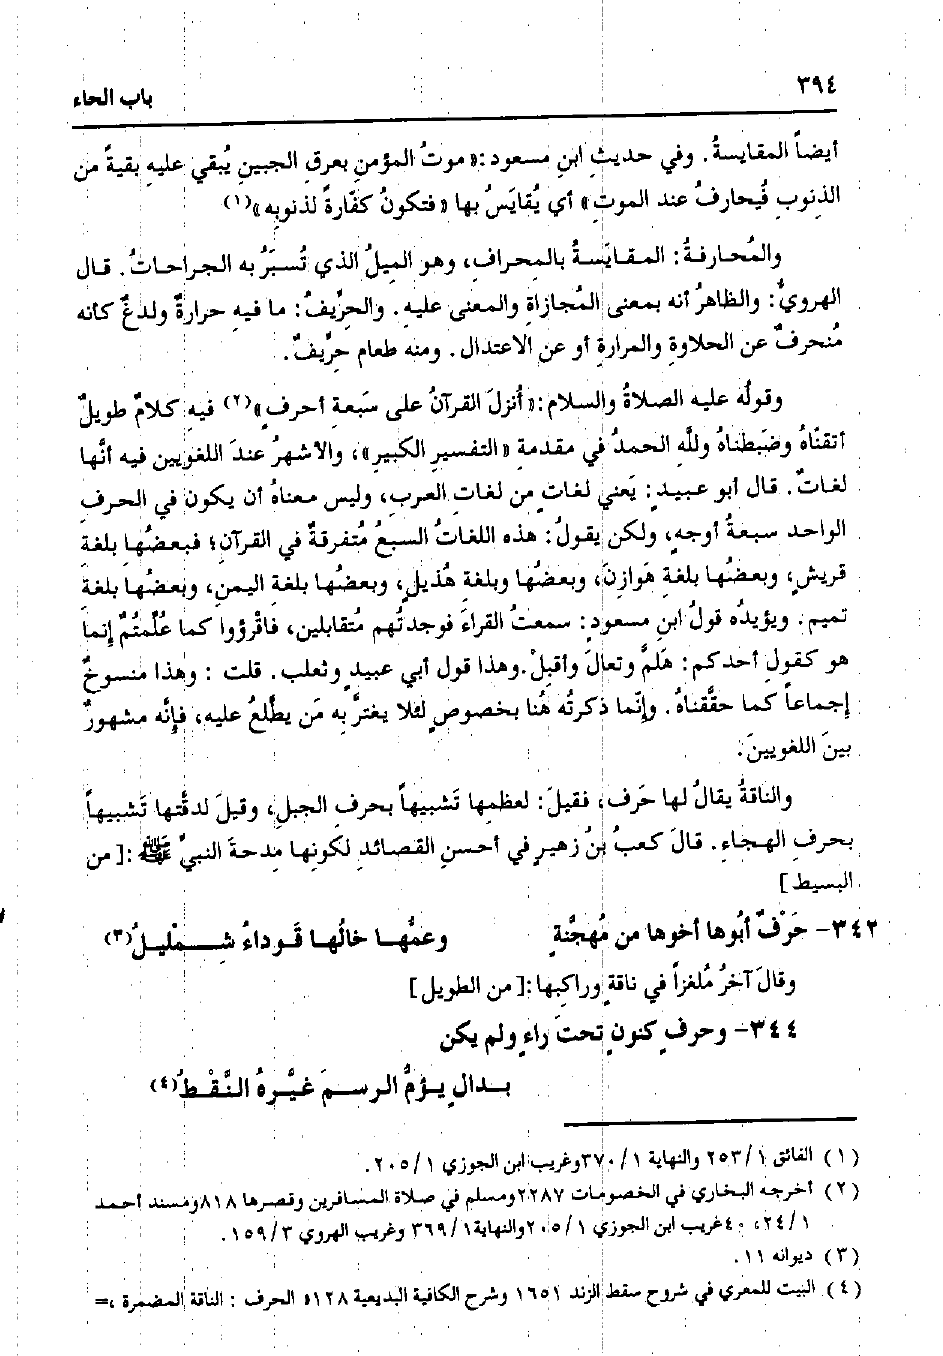 ٣٩٤
باب الحاء
أيضاً المقايسةُ. وفي حديثِ ابنِ مسعود:«موتُ المؤمنِ بعرقِ الجبينِ يُبقي عليهِ بقيةً من
الذنوبِ فُيحارفُ عند الموتِ» أي يُقايَسُ بها «فتكونُ كفّارةً لذنوبِه»(١)
والمُحارفةُ: المقايَسةُ بالمحرافِ، وهو الميلُ الذي تُسبَرُ به الجراحاتُ. قال
الهرويُّ: والظاهرُ أنه بمعنى المُجازاةِ والمعنى عليهِ. والحِرِّيفُ: ما فيهِ حرارةٌ ولدغٌ كأنه
مُنحرفٌ عن الحلاوةِ والمرارةِ أو عن الاعتدال. ومنه طعام حِرِّيفٌ.
وقولُه عليه الصلاةُ والسلام:«أُنزلَ القرآنُ على سَبعةِ أحرفٍ»(٢) فيهِ كلامٌ طويلٌ
أتقنّاهُ وضبَطناهُ وللَّهِ الحمدُ في مقدمةِ «التفسيرِ الكبيرِ»، والأشهرُ عندَ اللغويين فيه أنَّها
لغاتٌ. قال أبو عبيدٍ: يَعني لغاتٍ من لغاتِ العربِ، وليس معناهُ أن يكون في الحرفِ
الواحد سبعةُ أوجهٍ، ولكن يقولُ: هذه اللغاتُ السبعُ مُتفرقةٌ في القرآنِ؛ فبعضُها بلغةِ
قريشٍ، وبعضُها بلغةِ هَوازنَ، وبعضُها وبلغةِ هُذيلٍ، وبعضُها بلغةِ اليمنِ، وبعضُها بلغةِ
تميم. ويؤيدُه قولُ ابنِ مسعودٍ: سمعتُ القراءَ فوجدتُهم مُتقابلين، فاقْرؤوا كما عُلِّمتُمْ إنما
هو كقولِ أحدكم: هَلمَّ وتعالَ وأقبلْ.وهذا قول أبي عبيدٍ وثعلب. قلت : وهذا منسوخٌ
إجماعاً كما حقَّقناهُ. وإنّما ذكرتُه هُنا بخصوصٍ لئلا يغترَّ به مَن يطَّلعُ عليه، فإنَّه مشهورٌ
بينَ اللغويينَ.
والناقةُ يقالُ لها حَرف، فقيلَ: لعظمِها تَشبيهاً بحرفِ الجبلِ، وقيلَ لدقَّتها تَشبيهاً
بحرفِ الهجاءِ. قالَ كعبُ بنُ زهيرٍ في أحسنِ القصائدِ لكونِها مِدحةَ النبيِّ ﷺ :[ من
البسيط ]
٣٤٢- حَرْفٌ أبُوها أخوها من مُهجَّنةٍ وعمُّها خالُها قَوداءُ شِمْليلُ(٣)
وقالَ آخرُ مُلغزاً في ناقةٍ وراكبِها:[ من الطويل ]
٣٤٤- وحرفٍ كنونٍ تحتَ راءٍ ولم يكن
بدالٍ يؤمُّ الرسمَ غيَّرهُ النَّقْطُ(٤)
(١) الفائق ١/ ٢٥٣ والنهاية ١/ ٣٧٠وغريب ابن الجوزي ١/ ٢٠٥.
(٢) أخرجه البخاري في الخصومات ٢٢٨٧ومسلم في صلاة المسافرين وقصرها ٨١٨ومسند أحمد
١/ ٢٤، ٤٠غريب ابن الجوزي ١/ ٢٠٥والنهاية١/ ٣٦٩ وغريب الهروي ٣/ ١٥٩.
(٣) ديوانه ١١.
(٤) البيت للمعري في شروح سقط الزند ١٦٥١ وشرح الكافية البديعية ١٢٨ه الحرف : الناقة المضمرة ،=